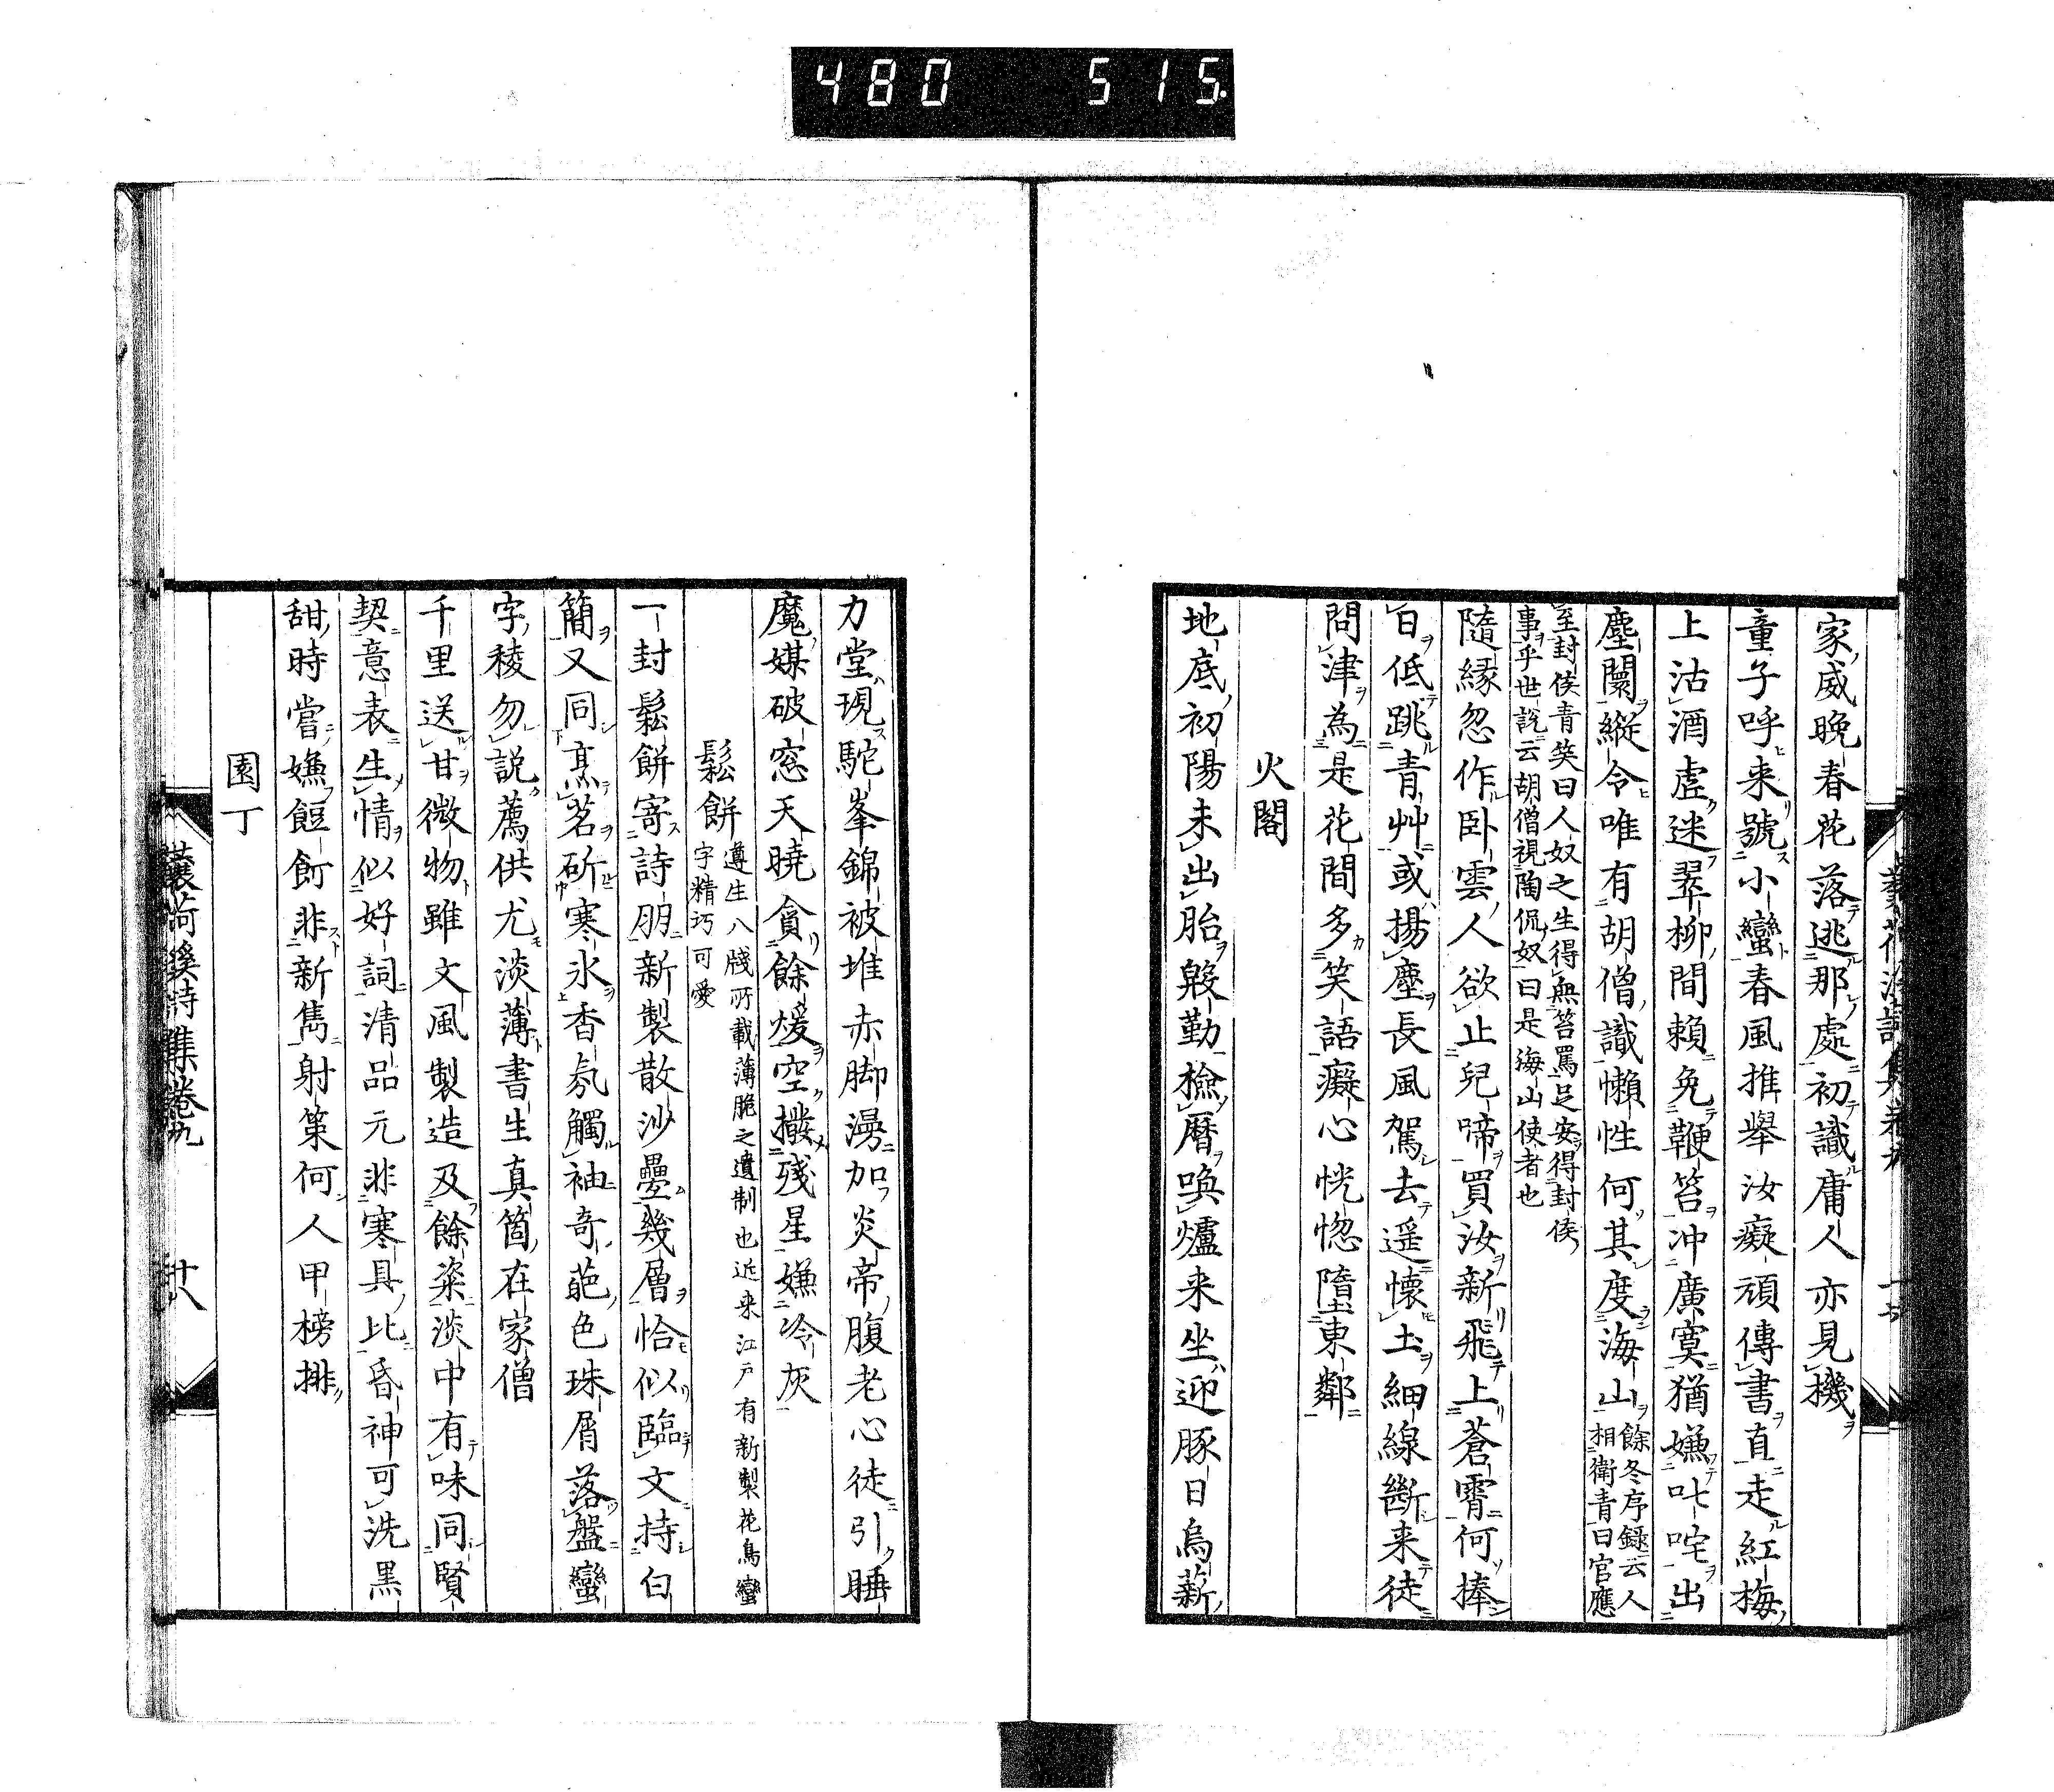 480 515.
家威晩春花落逃那處初識庸人亦見機
童子呼来號小蠻春風推擧汝癡頑傳書直走紅梅
上沽酒虚迷翠柳間頼免鞭笞冲廣寞猶嫌叱咤出
塵闤縦令唯有胡僧識懶性何其度海山
餘冬序録云人
相衛青曰官應
至封侯青笑曰人奴之生得無笞罵足安得封侯
事乎世説云胡僧視陶侃奴曰是海山使者也
隨縁忽作臥雲人欲止兒啼買汝新飛上蒼霄何捧
白低跳青艸或揚塵長風駕去遥懐土細線斷来徒
問津為是花間多笑語癡心恍惚墮東鄰
火閣
地底初陽未出胎慇勤檢暦喚爐来坐迎豚日烏薪
力堂現駝峯錦被堆赤脚漫加炎帝腹老心徒引睡
魔媒破窓天曉貪餘煖空撥残星嫌冷灰
鬆餅
遵生八牋所載薄脆之遺制也近来江戸有新製花鳥蠻
字精巧可愛
一封鬆餅寄詩朋新製散沙壘幾層恰似臨文持白
簡又同烹茗斫寒氷香氛觸袖奇葩色珠屑落盤蠻
字稜勿説薦供尤淡薄書生真箇在家僧
千里送甘微物雖文風製造及餘粢淡中有味同賢
契意表生情似好詞清品元非寒具比昏神可洗黒
甜時嘗嫌餖飣非新雋射策何人甲榜排
園丁
蘐荷溪詩集巻九 十八